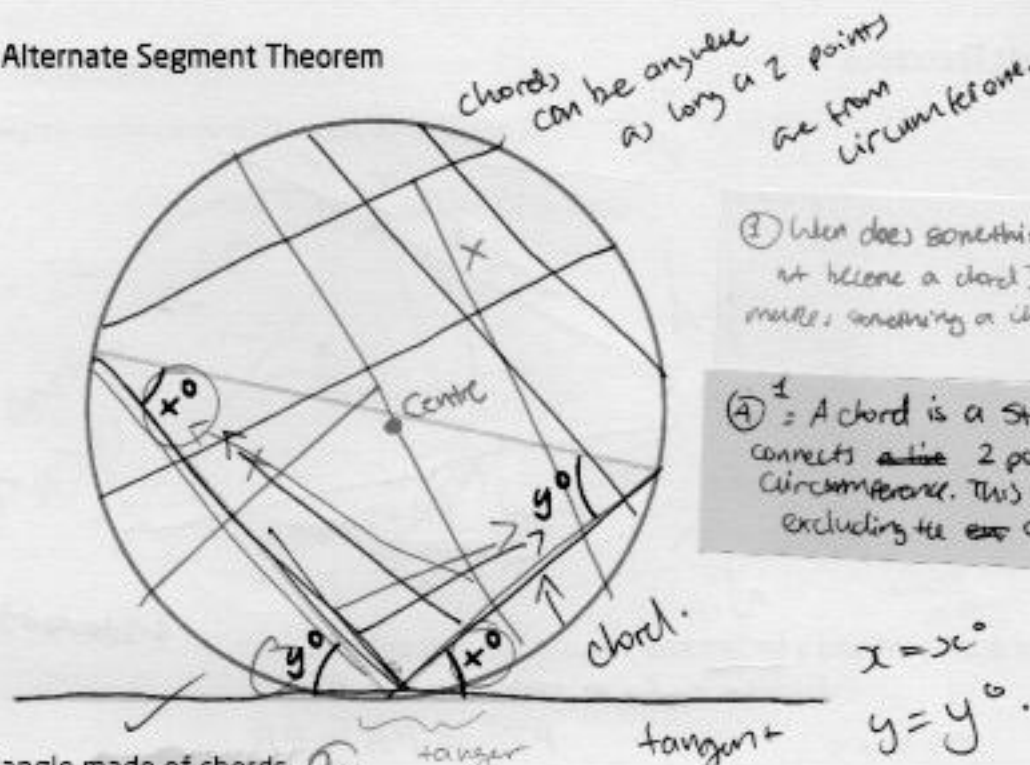 Alternate Segment Theorem
chords
can be anywhere
as long as 2 points
are from
circumference.
① When does somethi
not become a chord?
makes something a
x
x°
Centre
x
y°
④ 1 = A chord is a st
connects a line 2 po
circumference. This
excluding the
y°
x°
chord.
x = x°
y = y°
tangent
angle made of chords